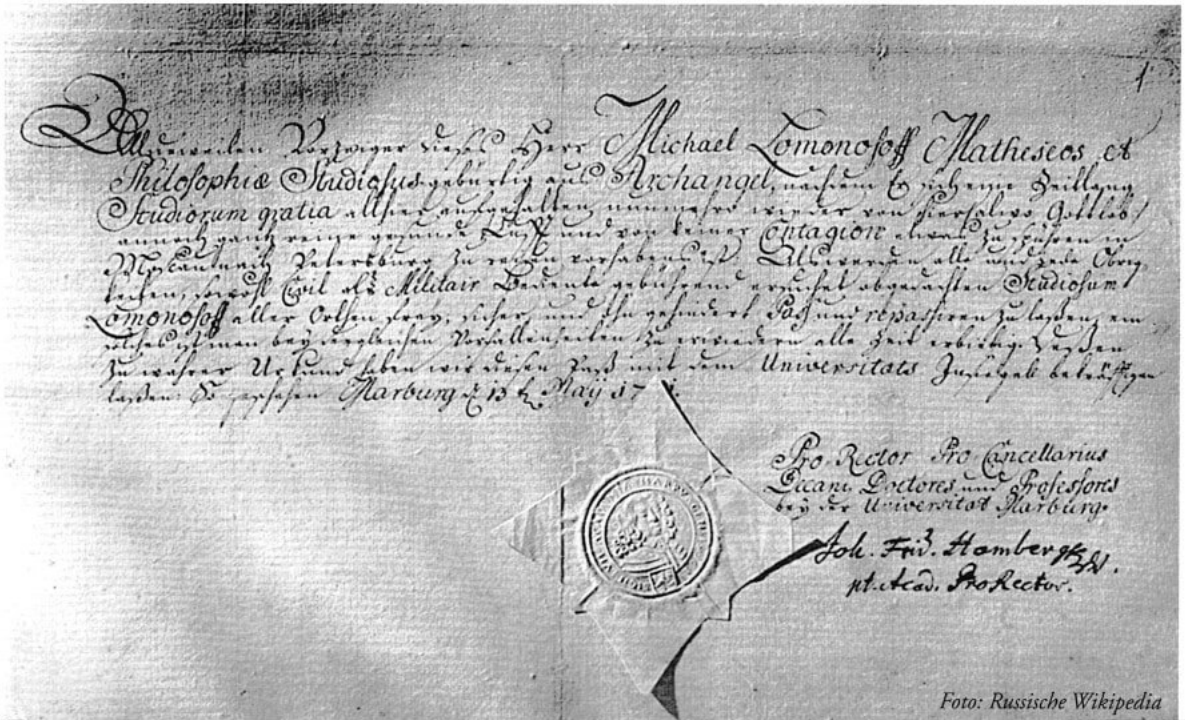 1
Alldieweilen Vorzeiger dieses Herr Michael Lomonosoff Matheseos et
Philosophiæ Studiosus gebürtig aus Archangel, nachdem Er sich eine Zeitlang
Studiorum gratia allhier aufgehalten nunmehro wieder von hier, allwo Gottlob
annoch gantz reine gesunde Lufft und von keiner Contagion etwas zu spühren in
Moscau nach Petersburg zu reisen vorhabens ist, Als werden alle und jede Obrig
keiten, sowohl Civil als Militair Bediente gebührend ersuchet abgedachten Studiosum
Lomonosoff aller Orthen frey, sicher, und ohngehindert Paß und repassiren zu laßen, ein
solches ist man bey dergleichen Vorfallenheiten zu erwiedern alle Zeit erbietig. Deßen
zu wahrer Urkund haben wir diesen Paß mit dem Universitats Insiegel bekräfftigen
laßen. So geschehen Marburg d 13 Maij 17
Pro-Rector Pro-Cancellarius
Decani Doctores und Professores
bey der Universität Marburg.
Joh. Frid. Homberg
pt. Acad. ProRector.
Foto: Russische Wikipedia